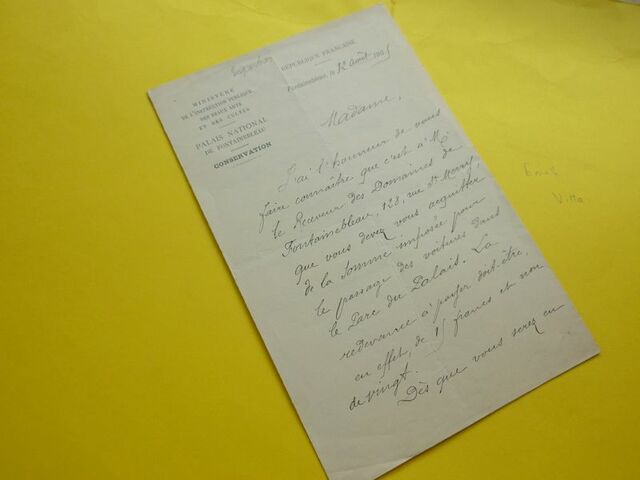 RÉPUBLIQUE FRANÇAISE
Fontainebleau, le 12 août 1905
MINISTÈRE
DE L'INSTRUCTION PUBLIQUE
DES BEAUX ARTS
ET DES CULTES
PALAIS NATIONAL
DE FONTAINEBLEAU
CONSERVATION
Madame,
J'ai l'honneur de vous
faire connaître que c'est à Mr
le Receveur des Domaines de
Fontainebleau, 128, rue St Merry,
que vous devez vous acquitter
de la somme imposée pour
le passage des voitures dans
le Parc du Palais. La
redevance à payer doit être,
en effet, de 15 francs et non
de vingt.
Dès que vous serez en
Villa